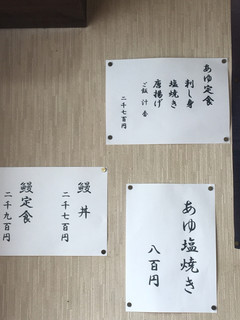 あゆ定食
刺し身
塩焼き
唐揚げ
ご飯 汁 香
二千七百円
鰻丼
二千七百円
鰻定食
二千九百円
あゆ塩焼き
八百円